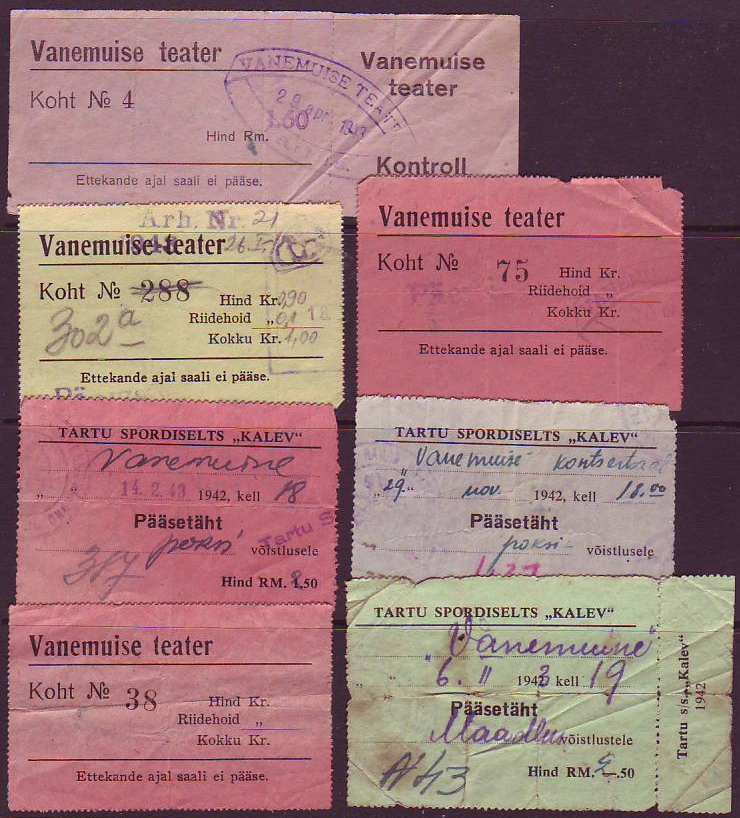 Vanemuise teater
Koht № 4
Hind Rm.
Ettekande ajal saali ei pääse.
VANEMUISE TEAT
1.60
Vanemuise
teater
Kontroll
Arh. Nr. 21
Vanemuise teater
Koht № 288
302a
Hind Kr. 0,90
Riidehoid „ 0,1
Kokku Kr. 1,00
Ettekande ajal saali ei pääse.
Vanemuise teater
Koht № 75
Hind Kr.
Riidehoid „
Kokku Kr.
Ettekande ajal saali ei pääse.
TARTU SPORDISELTS „KALEV“
Vanemuine
„ “ 14.2.43 1942, kell 18
Pääsetäht
poksi võistlusele
Tartu S
Hind RM. .50
TARTU SPORDISELTS „KALEV“
Vanemuise kontsertsaal
„29“ nov. 1942, kell 18.00
Pääsetäht
poksi- võistlusele
Vanemuise teater
Koht № 38
Hind Kr.
Riidehoid „
Kokku Kr.
Ettekande ajal saali ei pääse.
TARTU SPORDISELTS „KALEV“
"Vanemuine"
"6. II 1943 kell 19
Pääsetäht
Maadlus võistlustele
A 43
Hind RM. 2.50
Tartu s/s. „Kalev“
1942